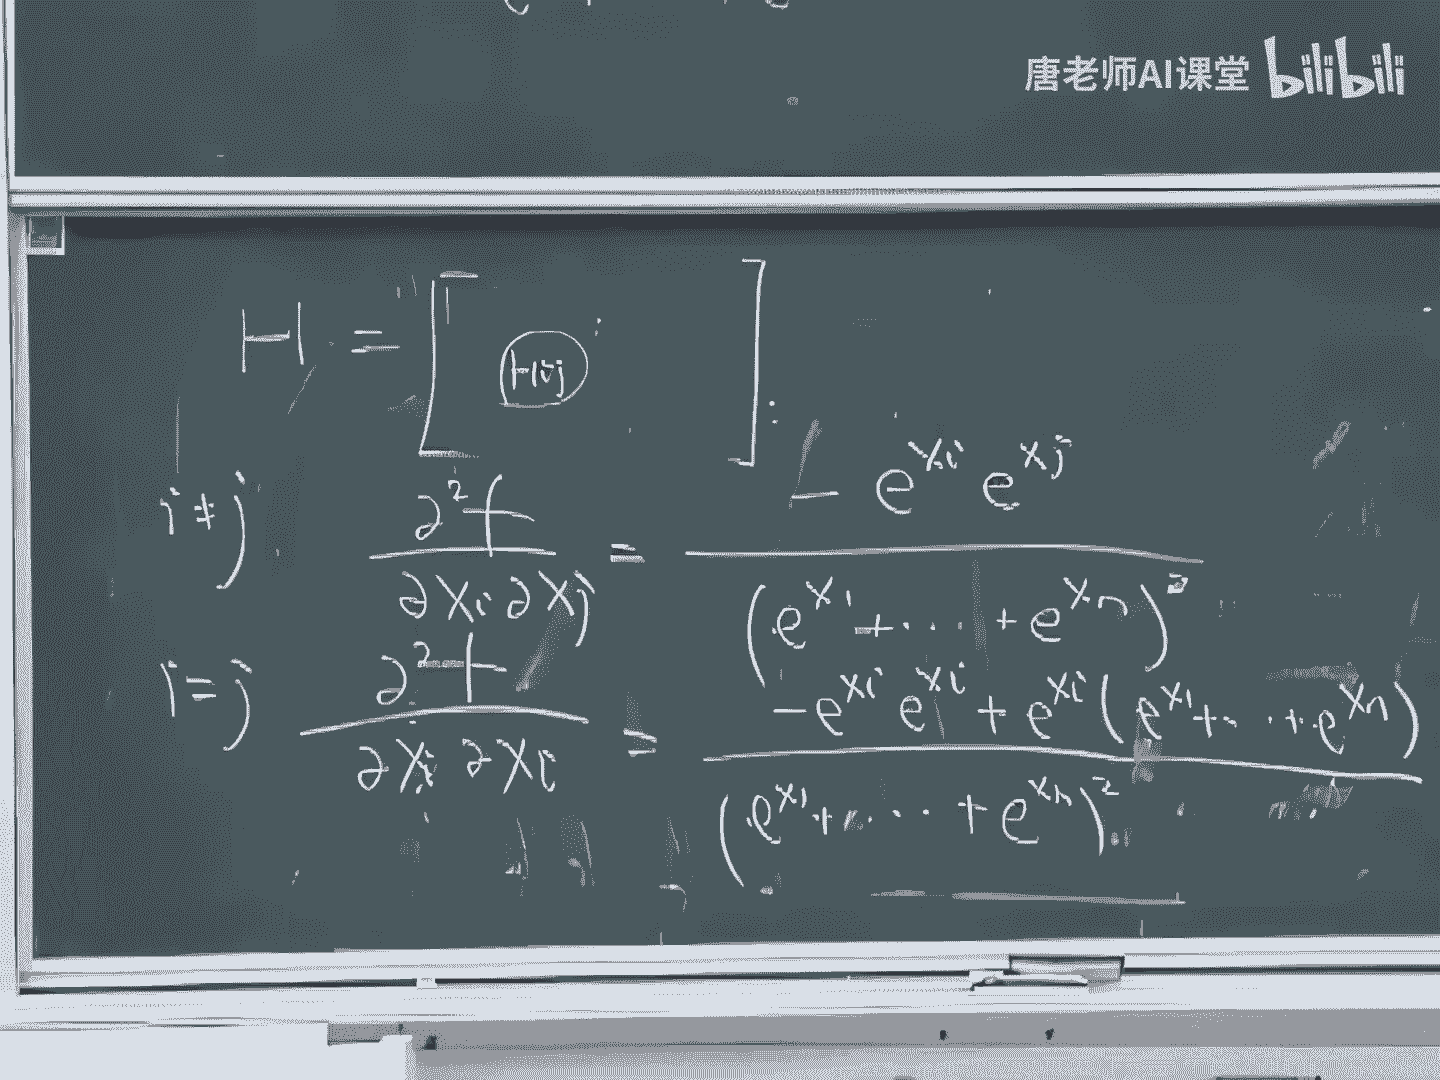 唐老师AI课堂 bilibili
H = [ Hij ]
i ≠ j ∂²f / ∂xi ∂xj = - e^xi e^xj / (e^x1 + ··· + e^xn)²
i = j ∂²f / ∂xi ∂xi = -e^xi e^xi + e^xi (e^x1 + ··· + e^xn) / (e^x1 + ··· + e^xn)²